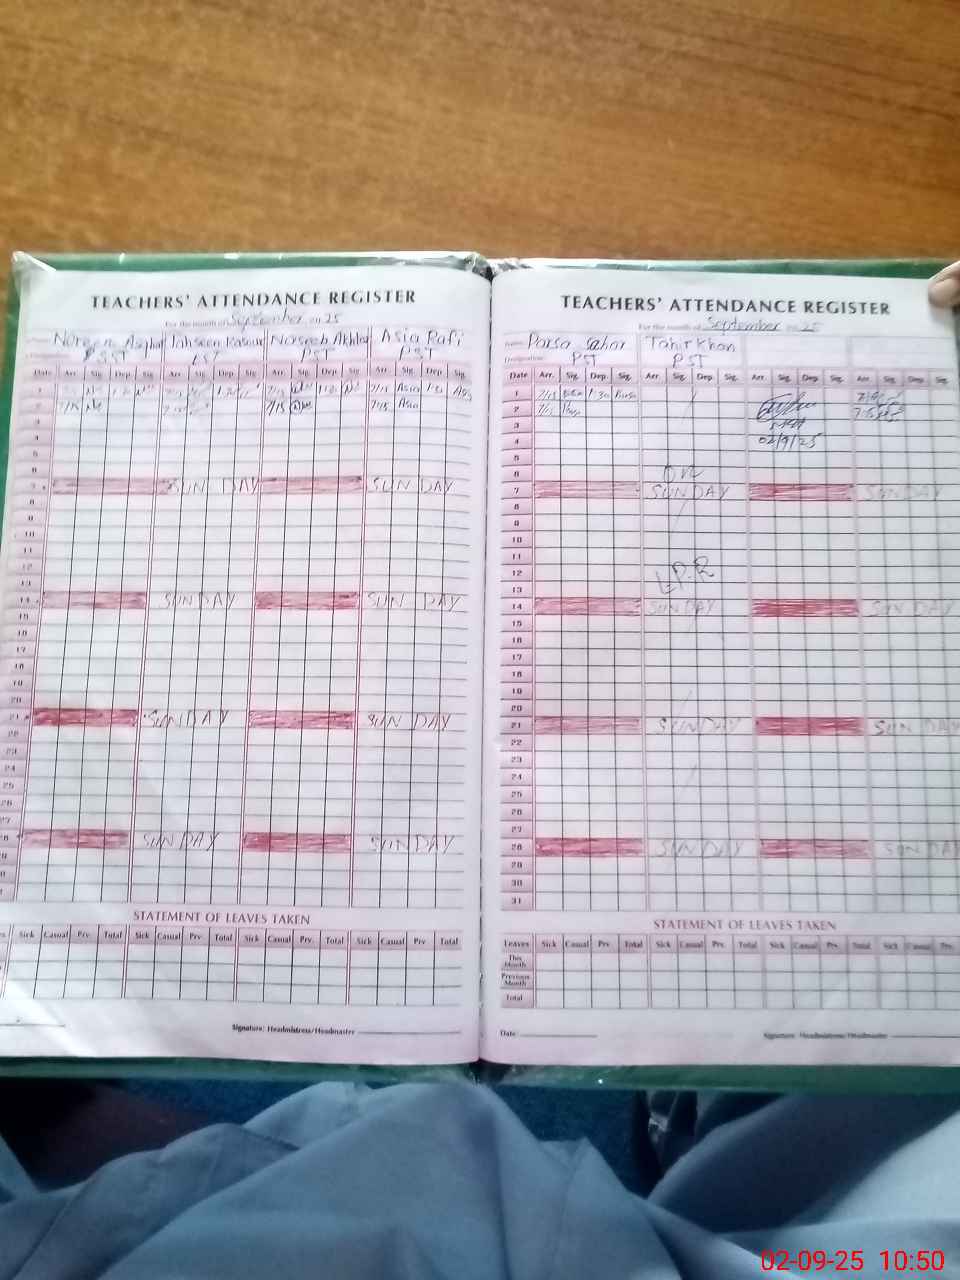 TEACHERS' ATTENDANCE REGISTER
For the month of September 2025
Noreen Asghar Tahseen Kasour Naseeb Akhtar Asia Rafi
PSST PST PST PST
Date Arr Sig. Dep Sig. Arr Sig. Dep Sig Arr. Sig. Dep Sig Arr. Sig. Dep. Sig.
1 7/15 Asia 1:30 Asia
2 7/15 7/15 7/15 Asia
3
4
5
6
7 SUNDAY SUNDAY
8
9
10
11
12
13
14 SUNDAY SUNDAY
15
16
17
18
19
20
21 SUNDAY SUNDAY
22
23
24
25
26
27
28 SUNDAY SUNDAY
29
STATEMENT OF LEAVES TAKEN
Sick Casual Prv. Total Sick Casual Prv. Total Sick Casual Prv. Total Sick Casual Prv Total
Signature: Headmistress/Headmaster
TEACHERS' ATTENDANCE REGISTER
For the month of September 2025
Name Parsa Sahar Tahir Khan
Designation: PST PST
Date Arr. Sig. Dep. Sig. Arr. Sig. Dep. Sig. Arr. Sig. Dep. Sig. Arr. Sig. Dep. Sig.
1 7/15 1:30 Parsa
2 7/15 Parsa
3
4 02/9/25
5
6 ON
7 SUNDAY SUNDAY
8
9
10
11
12 L.P.R
13
14 SUNDAY SUNDAY
15
16
17
18
19
20
21 SUNDAY SUNDAY
22
23
24
25
26
27
28 SUNDAY SUNDAY
29
30
31
STATEMENT OF LEAVES TAKEN
Leaves Sick Casual Prv. Total Sick Casual Prv. Total Sick Casual Prv. Total Sick Casual Prv.
This Month
Previous Month
Total
Date Signature: Headmistress/Headmaster
02-09-25 10:50